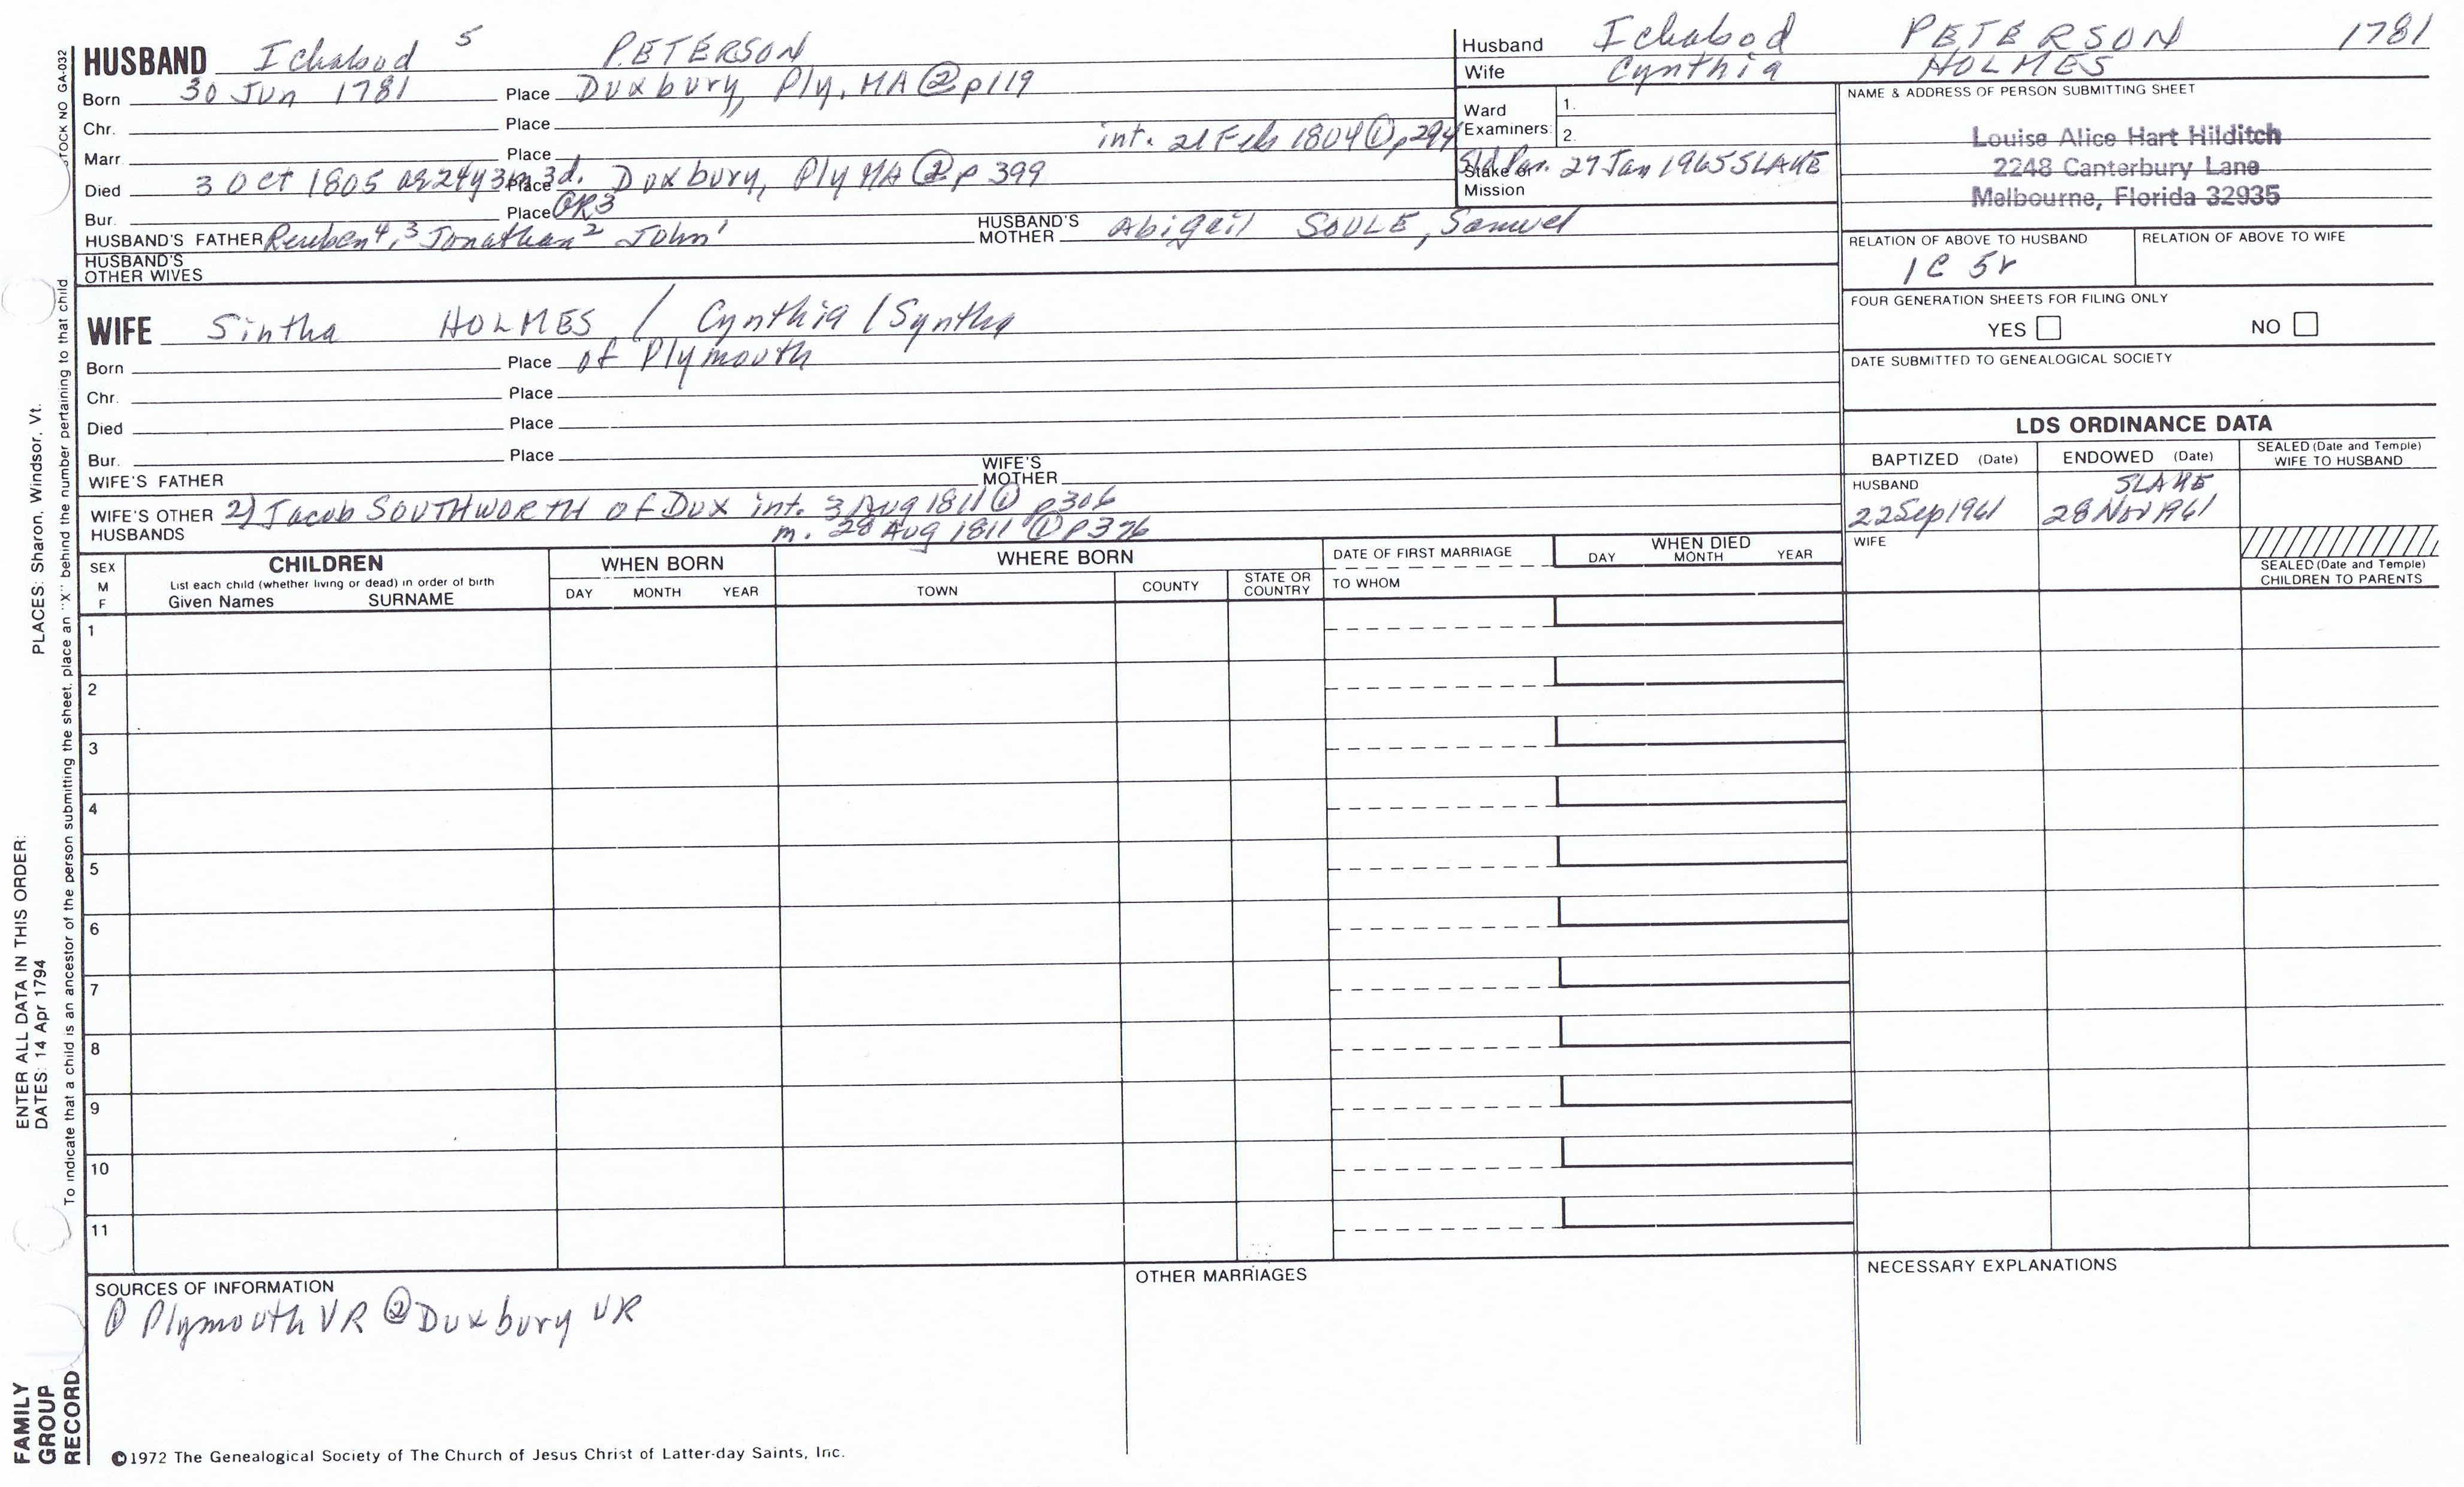 HUSBAND Ichabod 5 PETERSON
Born 30 Jun 1781 Place Duxbury, Ply, MA @2 p119
Chr. Place
Marr. Place int. 21 Feb 1804 ① p294
Died 3 Oct 1805 ae 24y 3m 3d. Place Duxbury, Ply MA @2 p 399
Bur. Place GR3
HUSBAND'S FATHER Reuben⁴, ³ Jonathan² John¹ HUSBAND'S MOTHER Abigail SOULE, Samuel
HUSBAND'S OTHER WIVES
WIFE Sintha HOLMES / Cynthia / Syntha
Born Place of Plymouth
Chr. Place
Died Place
Bur. Place
WIFE'S FATHER WIFE'S MOTHER
WIFE'S OTHER HUSBANDS 2) Jacob SOUTHWORTH of Dux int. 3 Aug 1811 ① p306
m. 28 Aug 1811 ① p376
Husband Ichabod PETERSON 1781
Wife Cynthia HOLMES
Ward Examiners: 1.
2.
Stake or Mission
Sld Par. 27 Jan 1965 SLAKE
NAME & ADDRESS OF PERSON SUBMITTING SHEET
Louise Alice Hart Hilditch
2248 Canterbury Lane
Melbourne, Florida 32935
RELATION OF ABOVE TO HUSBAND RELATION OF ABOVE TO WIFE
1C 5r
FOUR GENERATION SHEETS FOR FILING ONLY
YES NO
DATE SUBMITTED TO GENEALOGICAL SOCIETY
LDS ORDINANCE DATA
BAPTIZED (Date) ENDOWED (Date) SEALED (Date and Temple) WIFE TO HUSBAND
HUSBAND SLAKE
22 Sep 1961 28 Nov 1961
WIFE
SEALED (Date and Temple) CHILDREN TO PARENTS
SEX M F
CHILDREN
List each child (whether living or dead) in order of birth
Given Names SURNAME
WHEN BORN
DAY MONTH YEAR
WHERE BORN
TOWN COUNTY STATE OR COUNTRY
DATE OF FIRST MARRIAGE
TO WHOM
WHEN DIED
DAY MONTH YEAR
1
2
3
4
5
6
7
8
9
10
11
SOURCES OF INFORMATION
① Plymouth VR @2 Duxbury VR
OTHER MARRIAGES
NECESSARY EXPLANATIONS
©1972 The Genealogical Society of The Church of Jesus Christ of Latter-day Saints, Inc.
STOCK NO GA-032
To indicate that a child is an ancestor of the person submitting the sheet, place an "X" behind the number pertaining to that child
ENTER ALL DATA IN THIS ORDER:
DATES: 14 Apr 1794 PLACES: Sharon, Windsor, Vt.
FAMILY
GROUP
RECORD